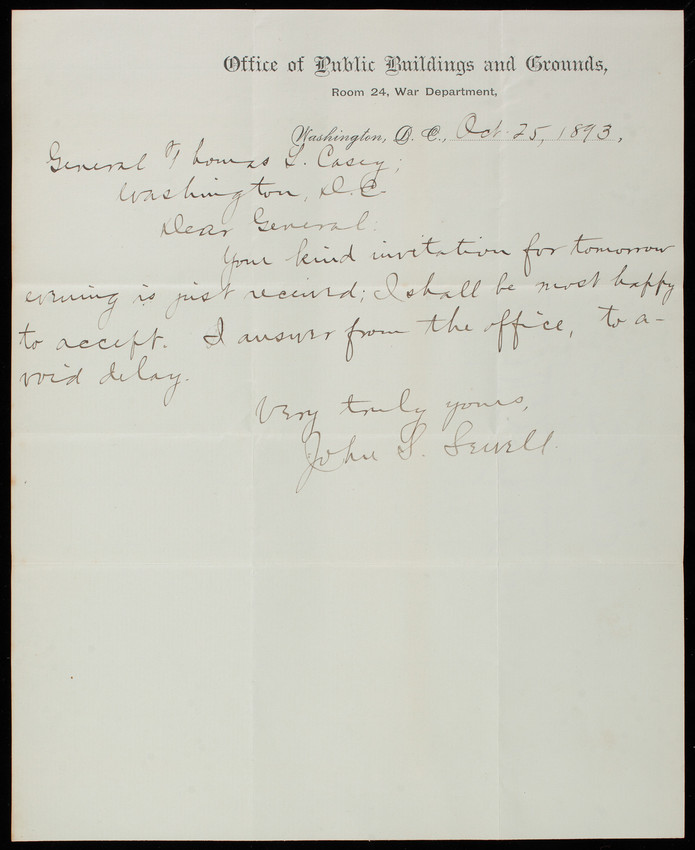 Office of Public Buildings and Grounds,
Room 24, War Department,
Washington, D. C., Oct. 25, 1893.
General Thomas L. Casey;
Washington, D.C.
Dear General:
Your kind invitation for tomorrow
evening is just received; I shall be most happy
to accept. I answer from the office, to a-
void delay.
Very truly yours,
John S. Sewell.